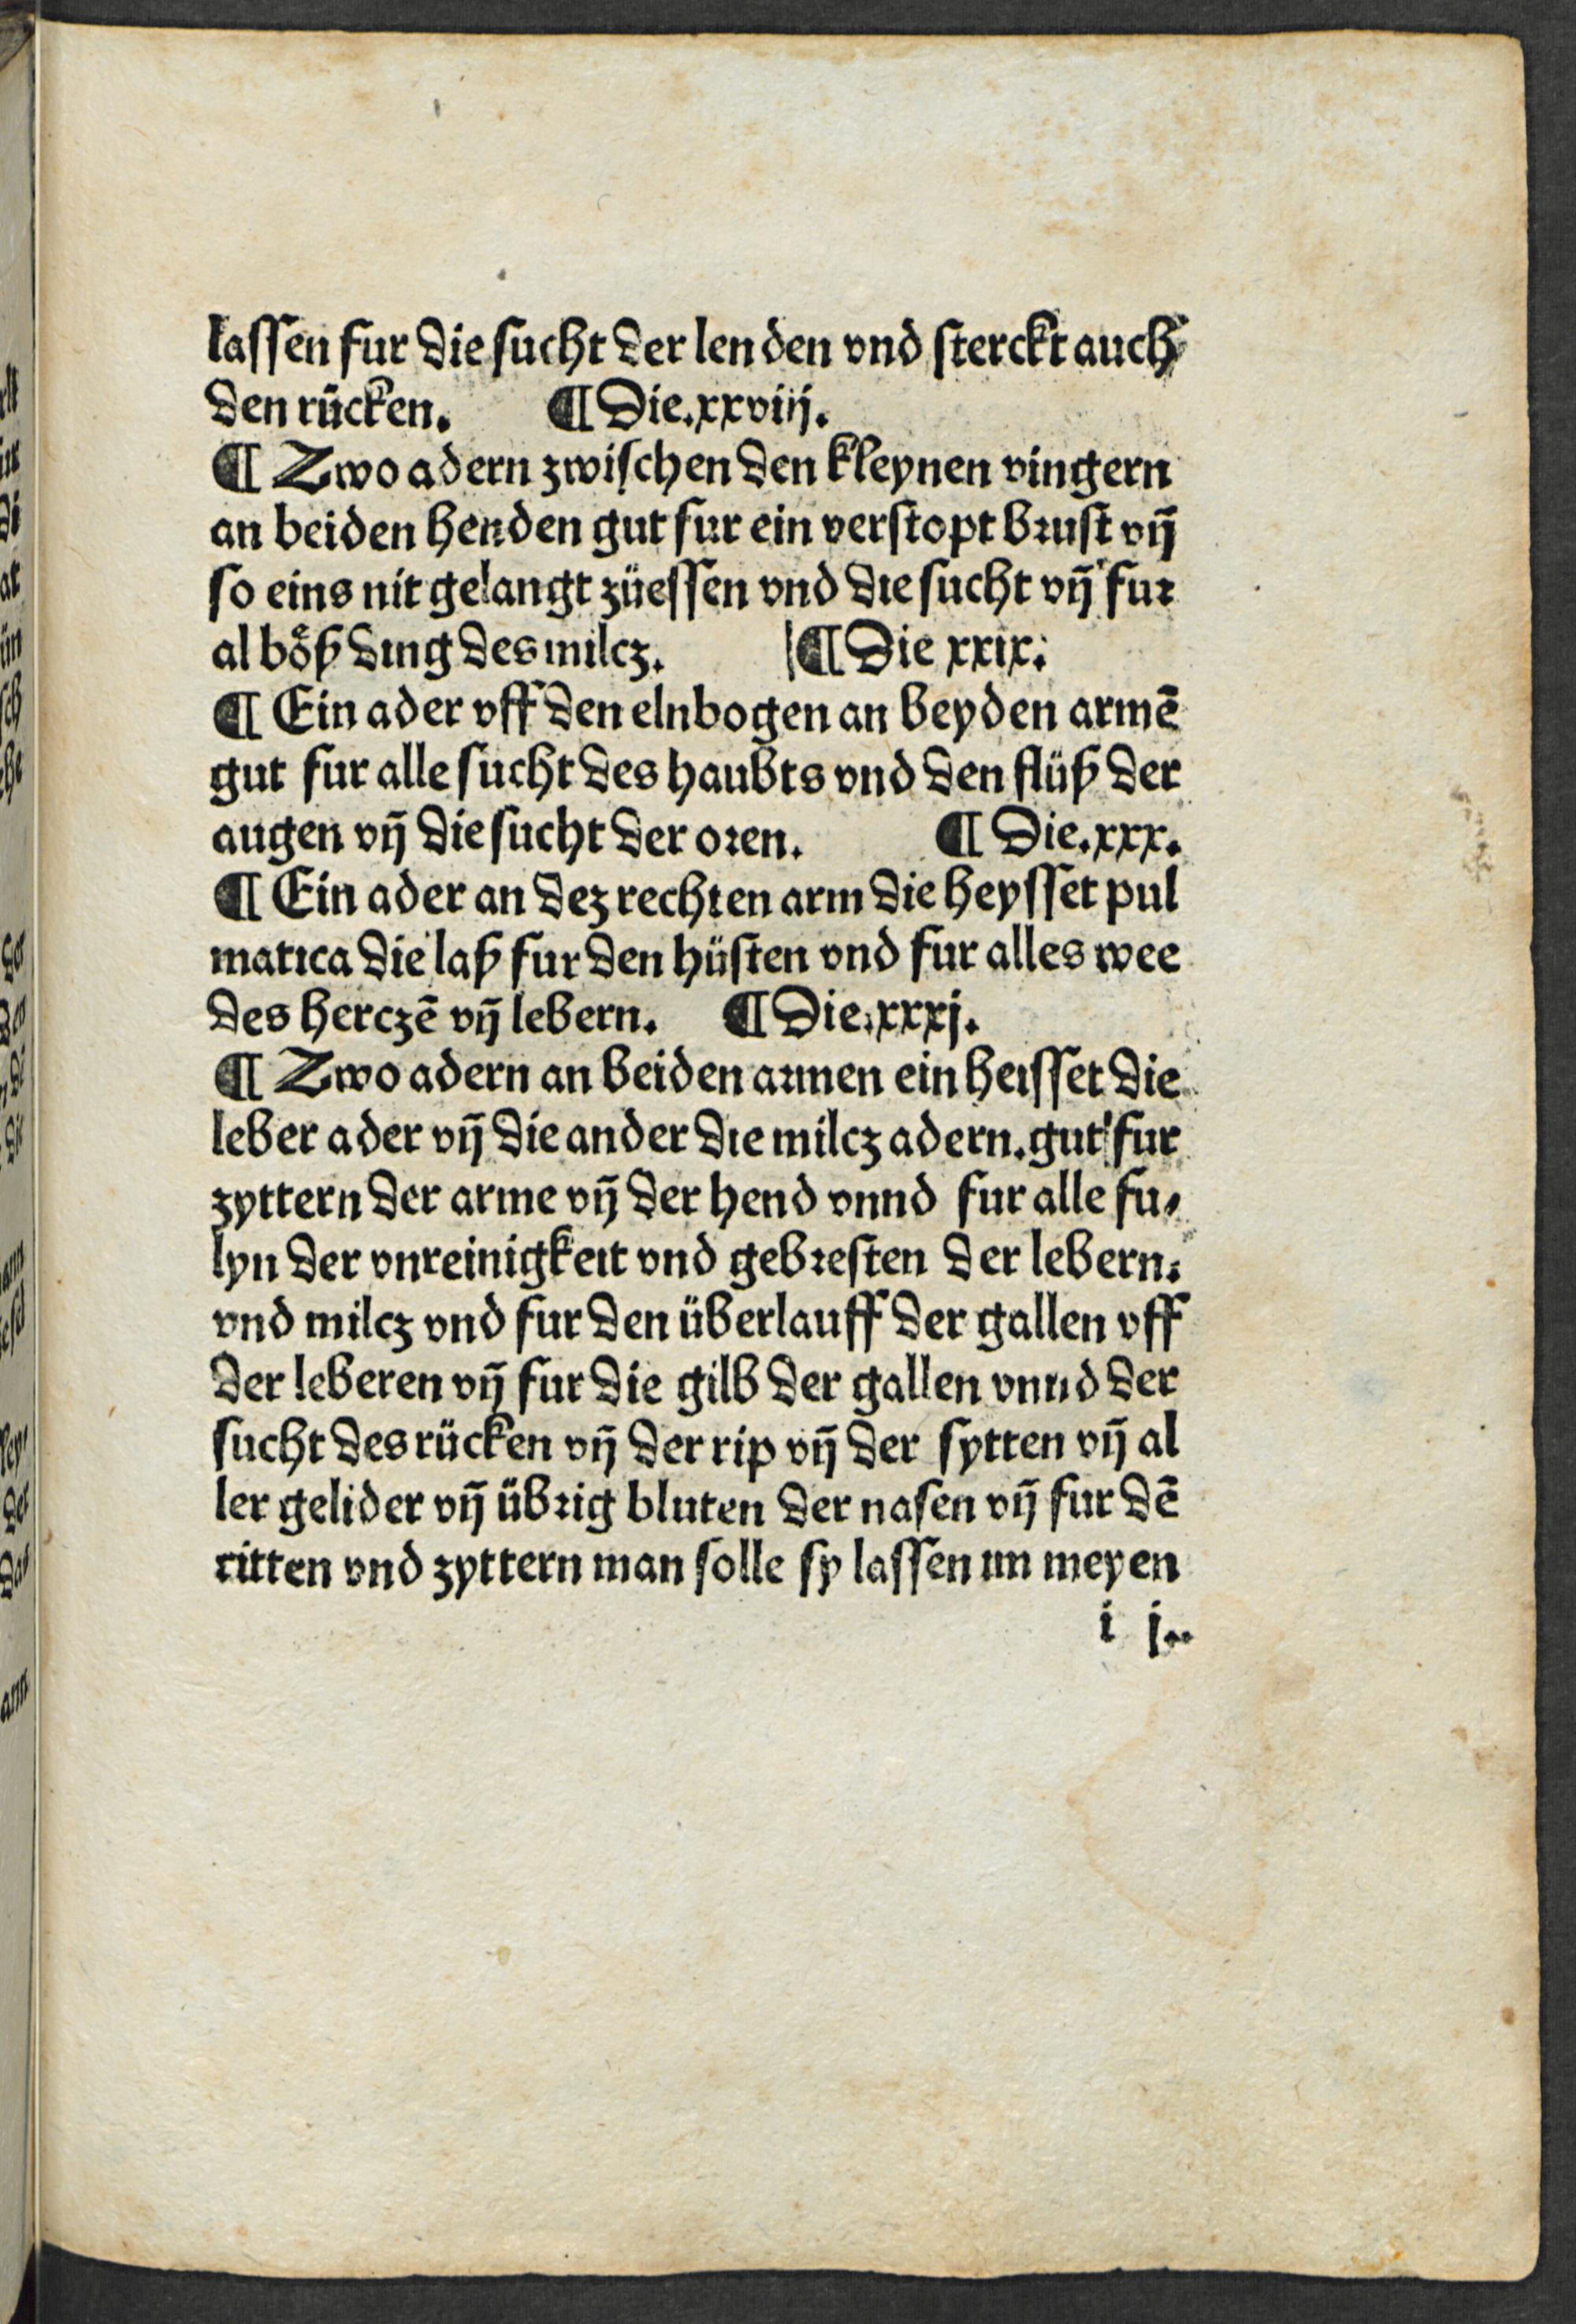 lassen fur die sucht der lenden vnd sterckt auch
den rücken. ¶ Die.xxviij.
¶ Zwo adern zwischen den kleynen vingern
an beiden henden gut fur ein verstopt brust vn̄
so eins nit gelangt züessen vnd die sucht vn̄ fur
al boͤß ding des milcz. ¶ Die xxix.
¶ Ein ader vff den elnbogen an beyden armē
gut fur alle sucht des haubts vnd den flüß der
augen vn̄ die sucht der oren. ¶ Die.xxx.
¶ Ein ader an dez rechten arm die heysset pul
matica die laß fur den hüsten vnd fur alles wee
des herczē vn̄ lebern. ¶ Die.xxxj.
¶ Zwo adern an beiden armen ein heisset die
leber ader vn̄ die ander die milcz adern.gut fur
zyttern der arme vn̄ der hend vnnd fur alle fu⸗
lyn der vnreinigkeit vnd gebresten der lebern.
vnd milcz vnd fur den überlauff der gallen vff
der leberen vn̄ fur die gilb der gallen vnnd der
sucht des rücken vn̄ der rip vn̄ der sytten vn̄ al
ler gelider vn̄ übrig bluten der nasen vn̄ fur dē
ritten vnd zyttern man solle sy lassen im meyen
i j..